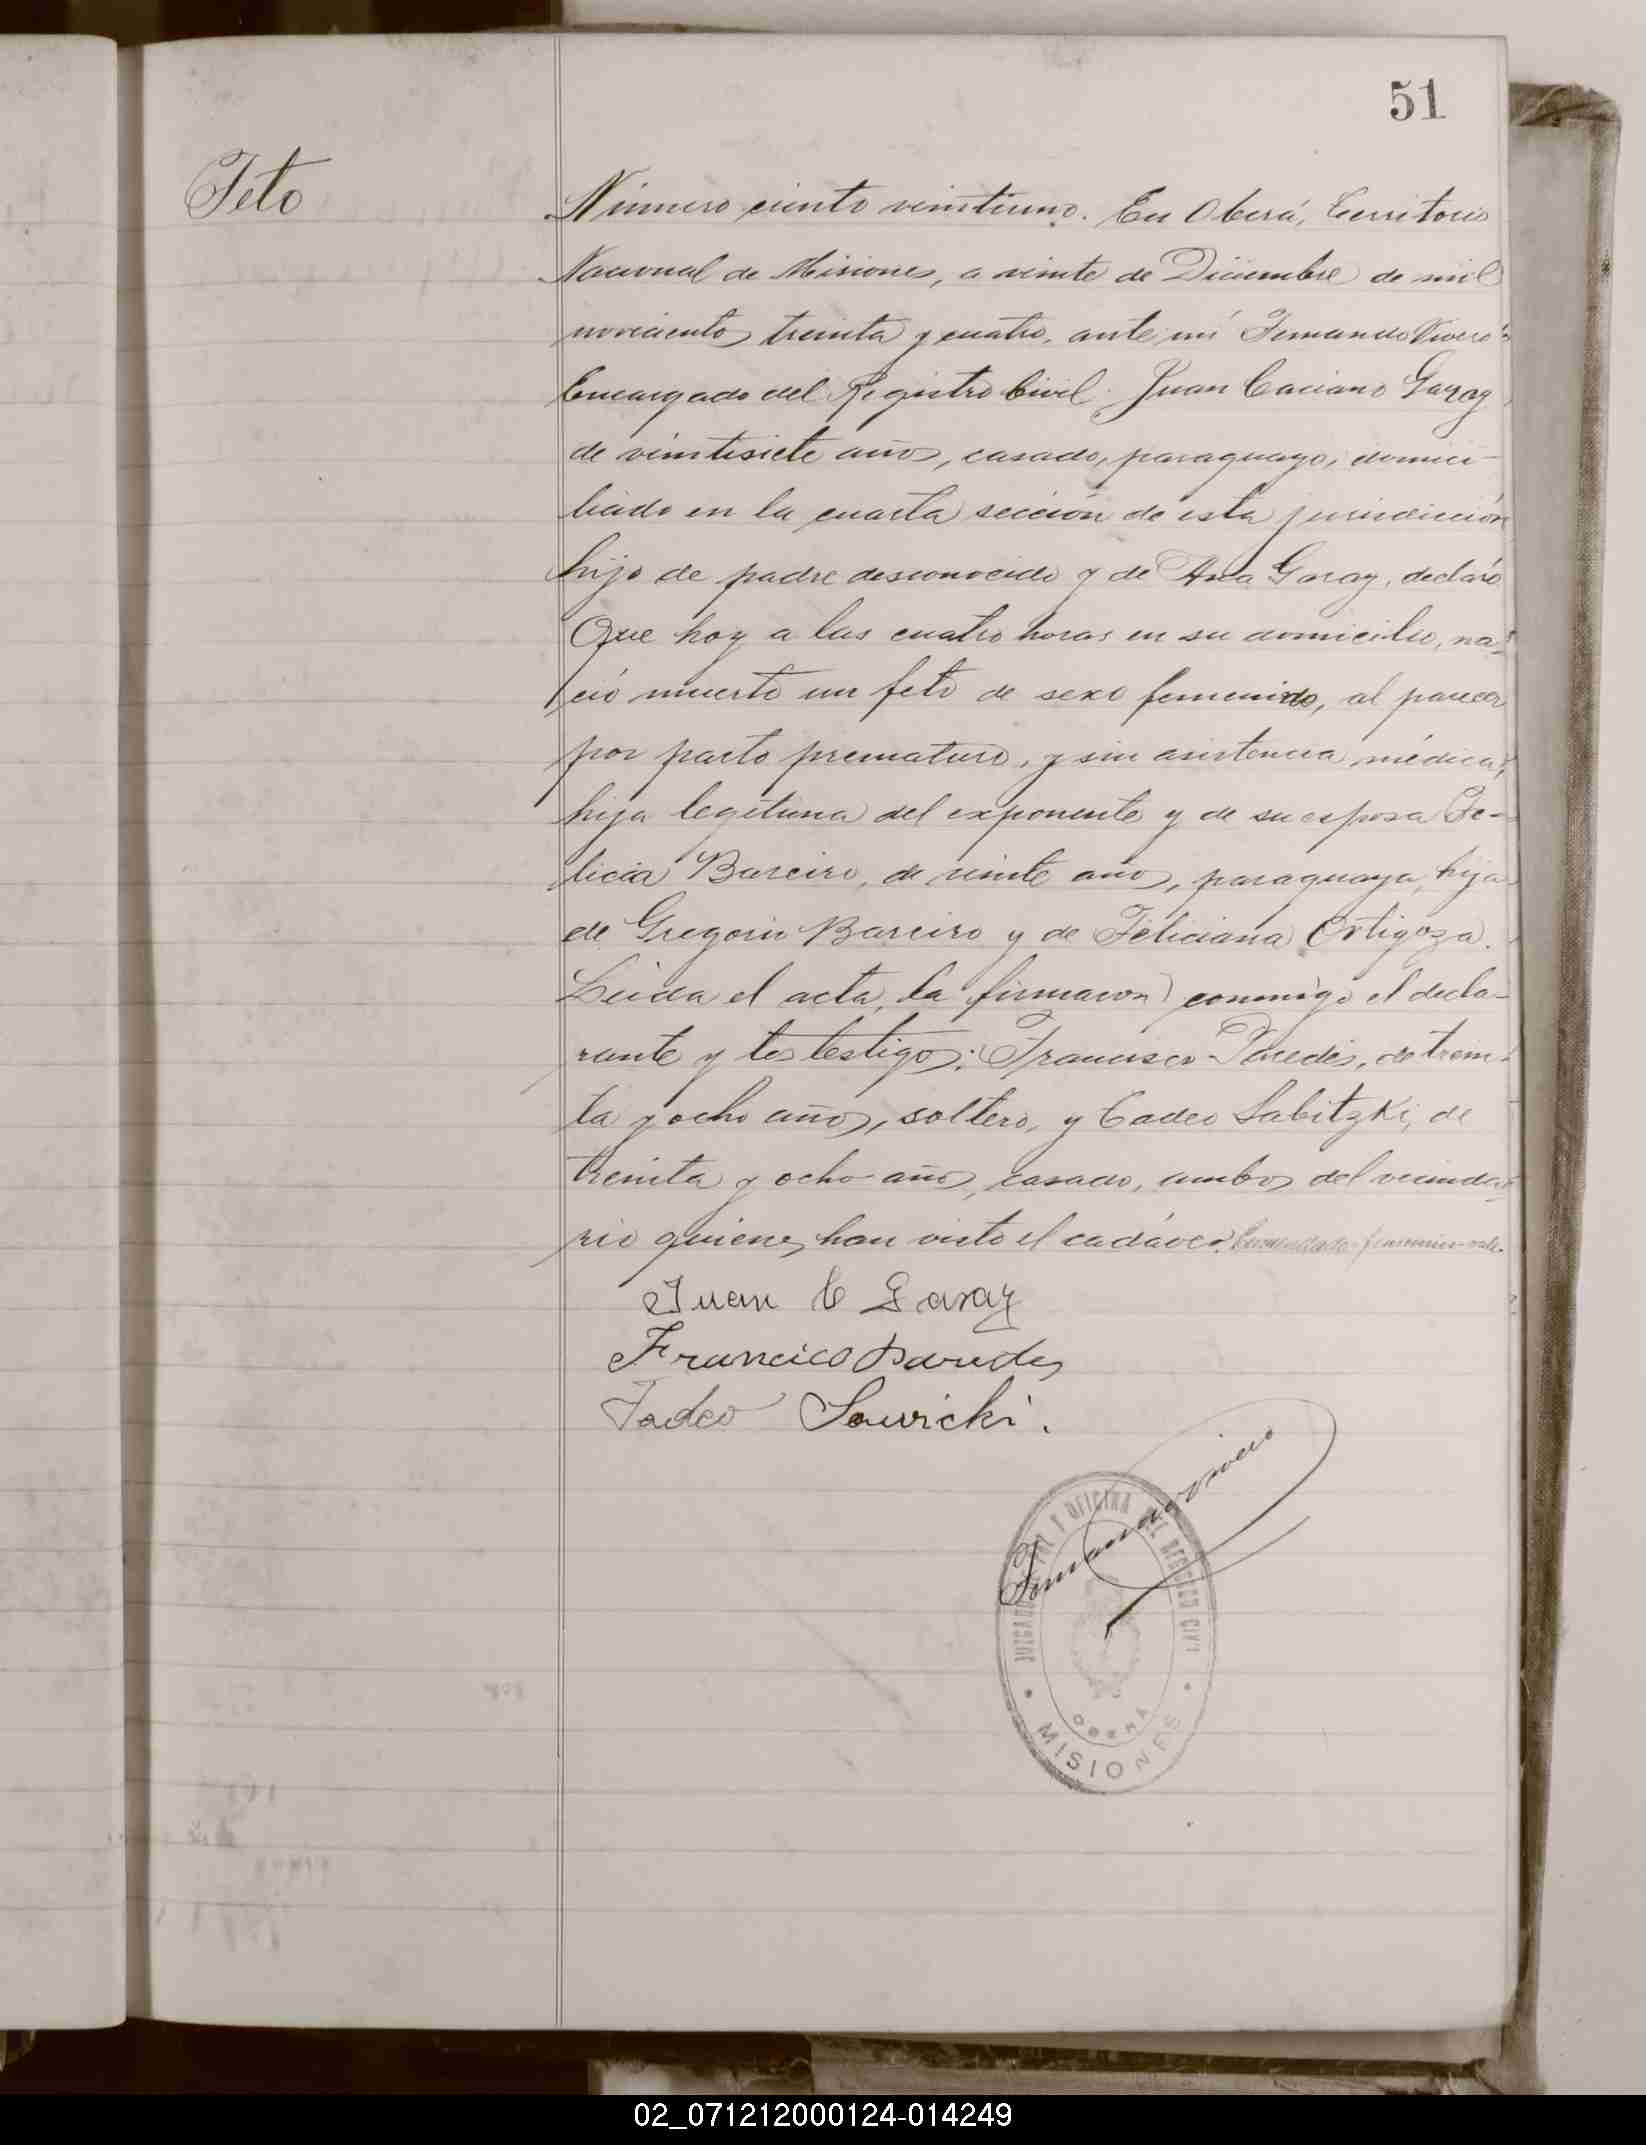 51
Feto
Número ciento veintiuno. En Oberá, Territorio
Nacional de Misiones, a veinte de Diciembre de mil
novecientos treinta y cuatro, ante mí Fernando Vivero
Encargado del Registro Civil. Juan Caciano Garay
de veintisiete años, casado, paraguayo, domici-
liado en la cuarta sección de esta jurisdicción
hijo de padre desconocido y de Ana Garay, declaró
Que hoy a las cuatro horas en su domicilio, na-
ció muerto un feto de sexo femenino, al parecer
por parto prematuro, y sin asistencia médica,
hija legítima del exponente y de su esposa Fe-
licia Bareiro, de veinte años, paraguaya, hija
de Gregorio Bareiro y de Feliciana Ortigoza.
Leída el acta, la firmaron conmigo el decla-
rante y los testigos: Francisco Paredes, de trein-
ta y ocho años, soltero, y Tadeo Sabitzki, de
treinta y ocho años, casado, ambos del vecinda-
rio quienes han visto el cadáver. Enmendado-femenino-vale.
Juan C Garay
Francico Paredes
Tadeo Sawicki.
Fernando Vivero
JUZGADO DE PAZ Y OFICINA DEL REGISTRO CIVIL
OBERÁ
MISIONES
02_071212000124-014249